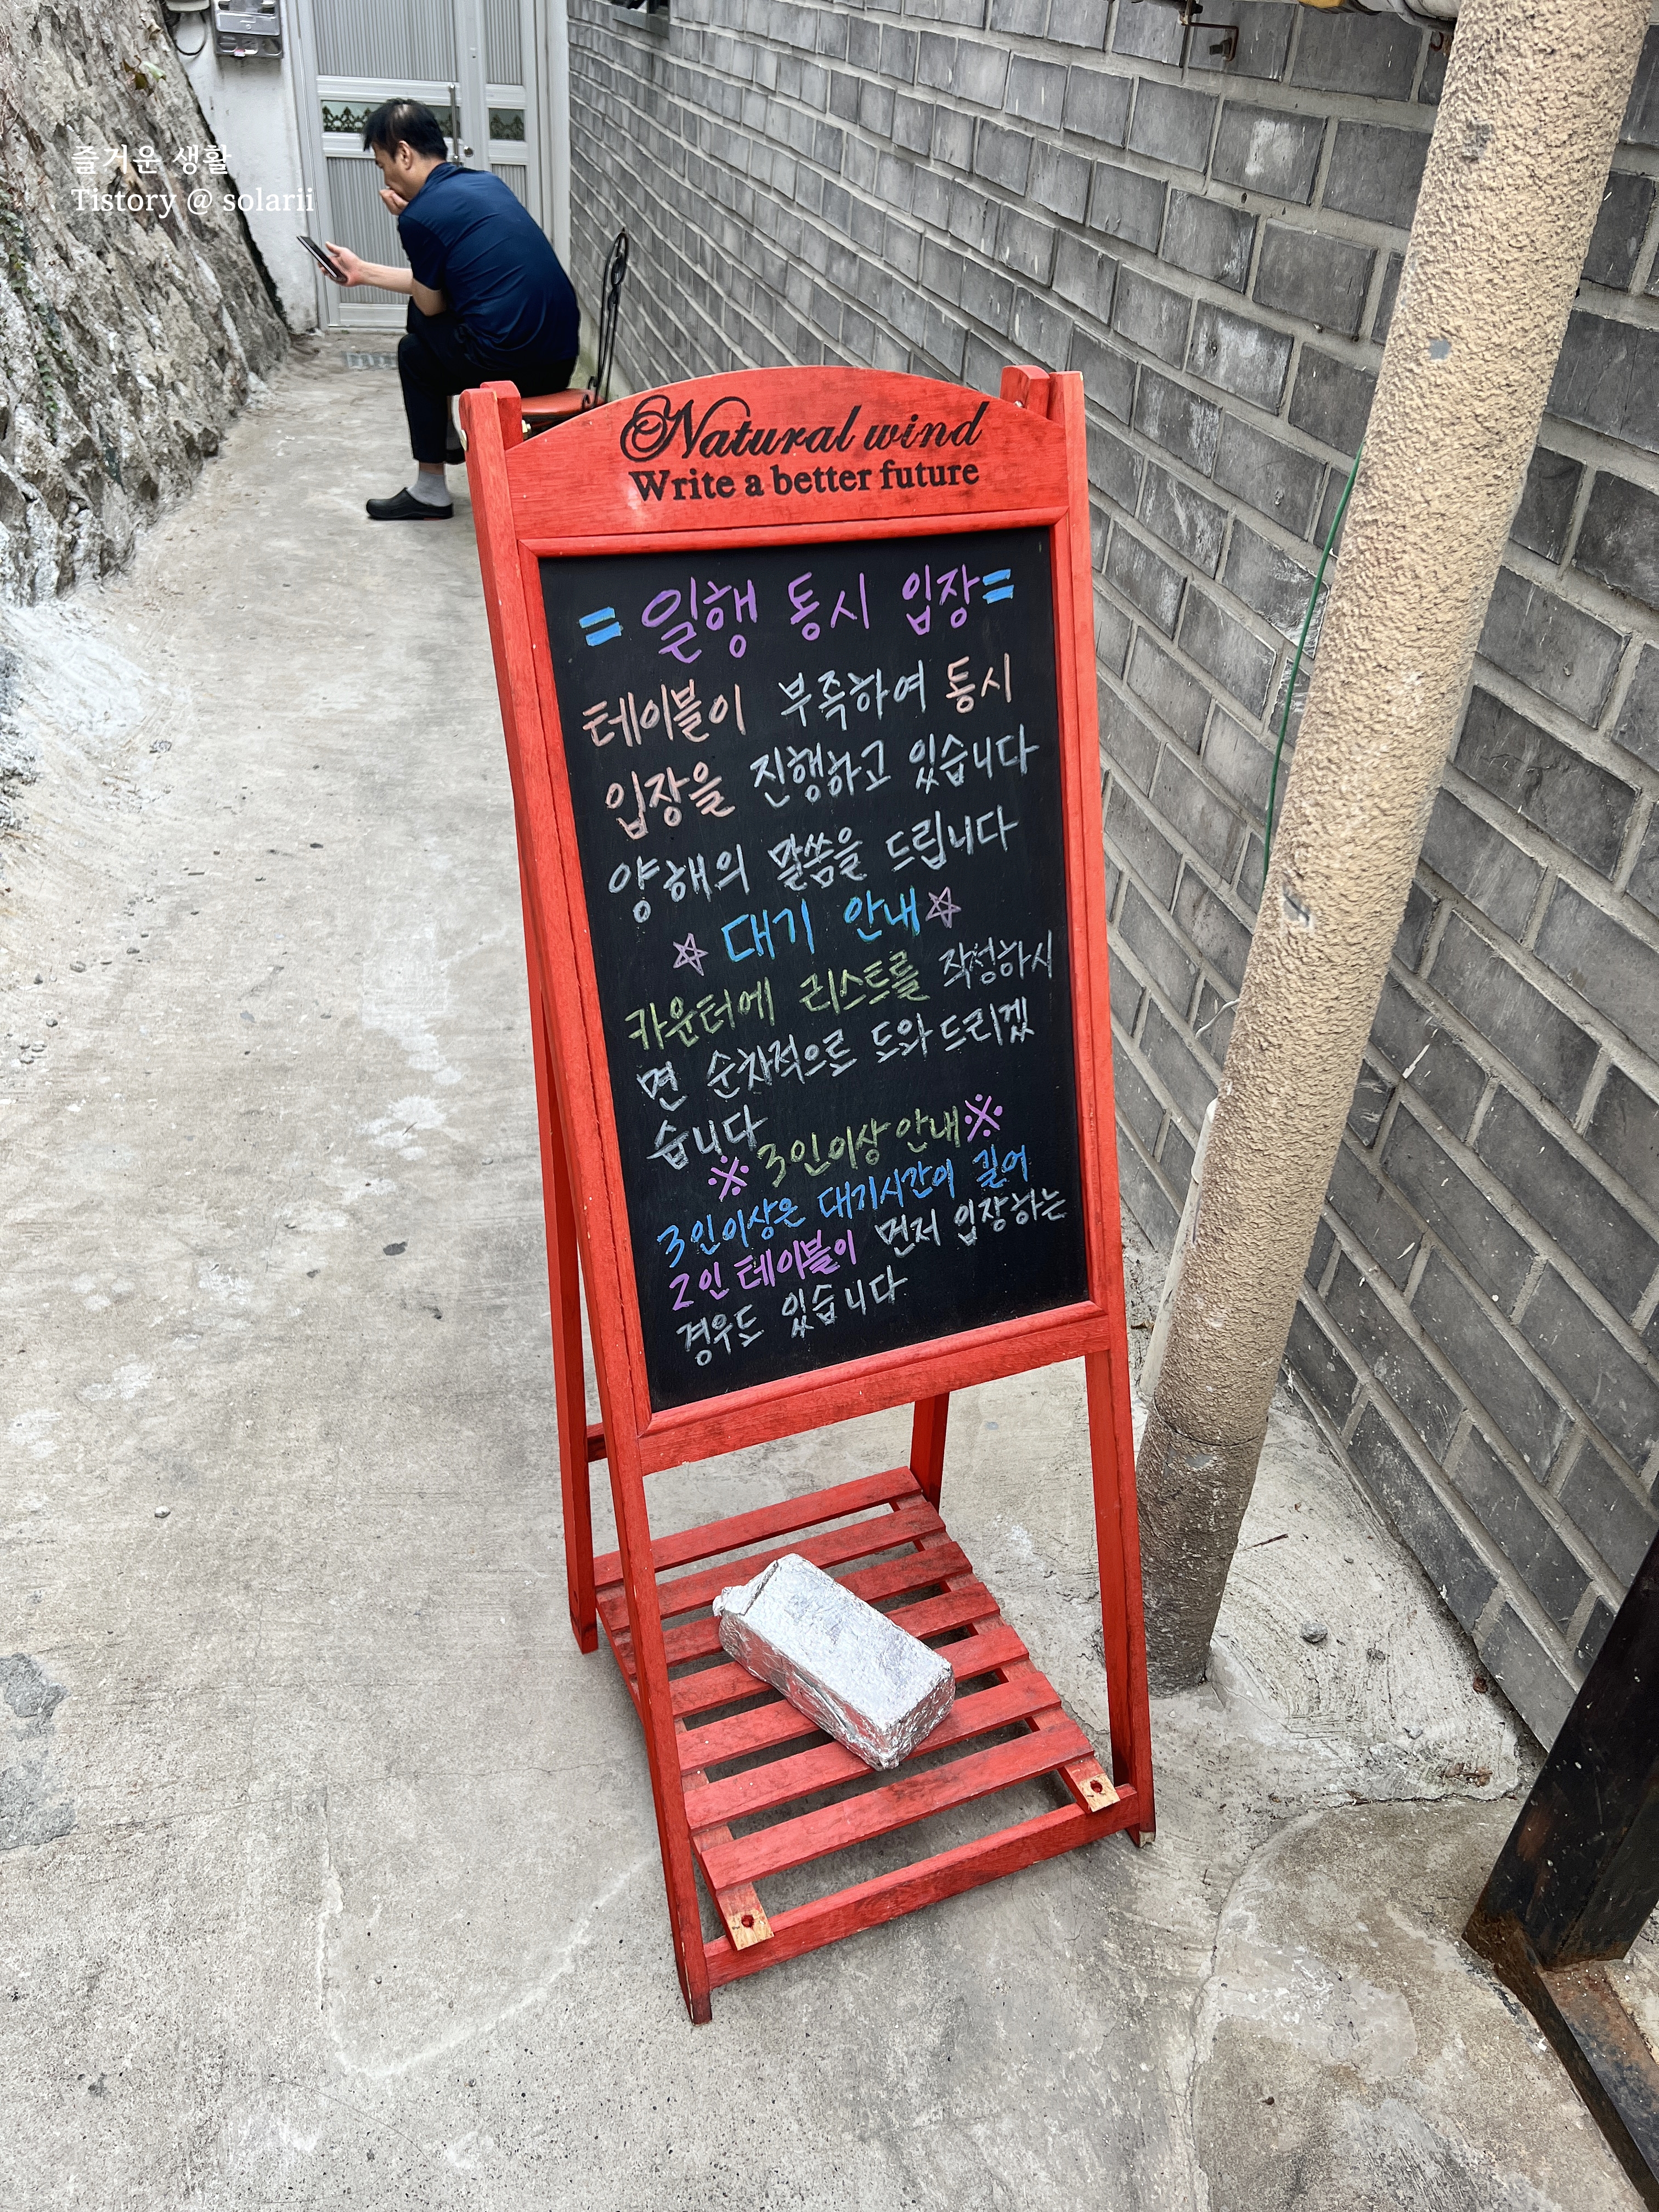 즐거운 생활
Tistory @ solarii
Natural wind
Write a better future
= 일행 동시 입장 =
테이블이 부족하여 동시
입장을 진행하고 있습니다
양해의 말씀을 드립니다
☆ 대기 안내 ☆
카운터에 리스트를 작성하시
면 순차적으로 도와드리겠
습니다
※ 3인이상 안내 ※
3인이상은 대기시간이 길어
2인 테이블이 먼저 입장하는
경우도 있습니다